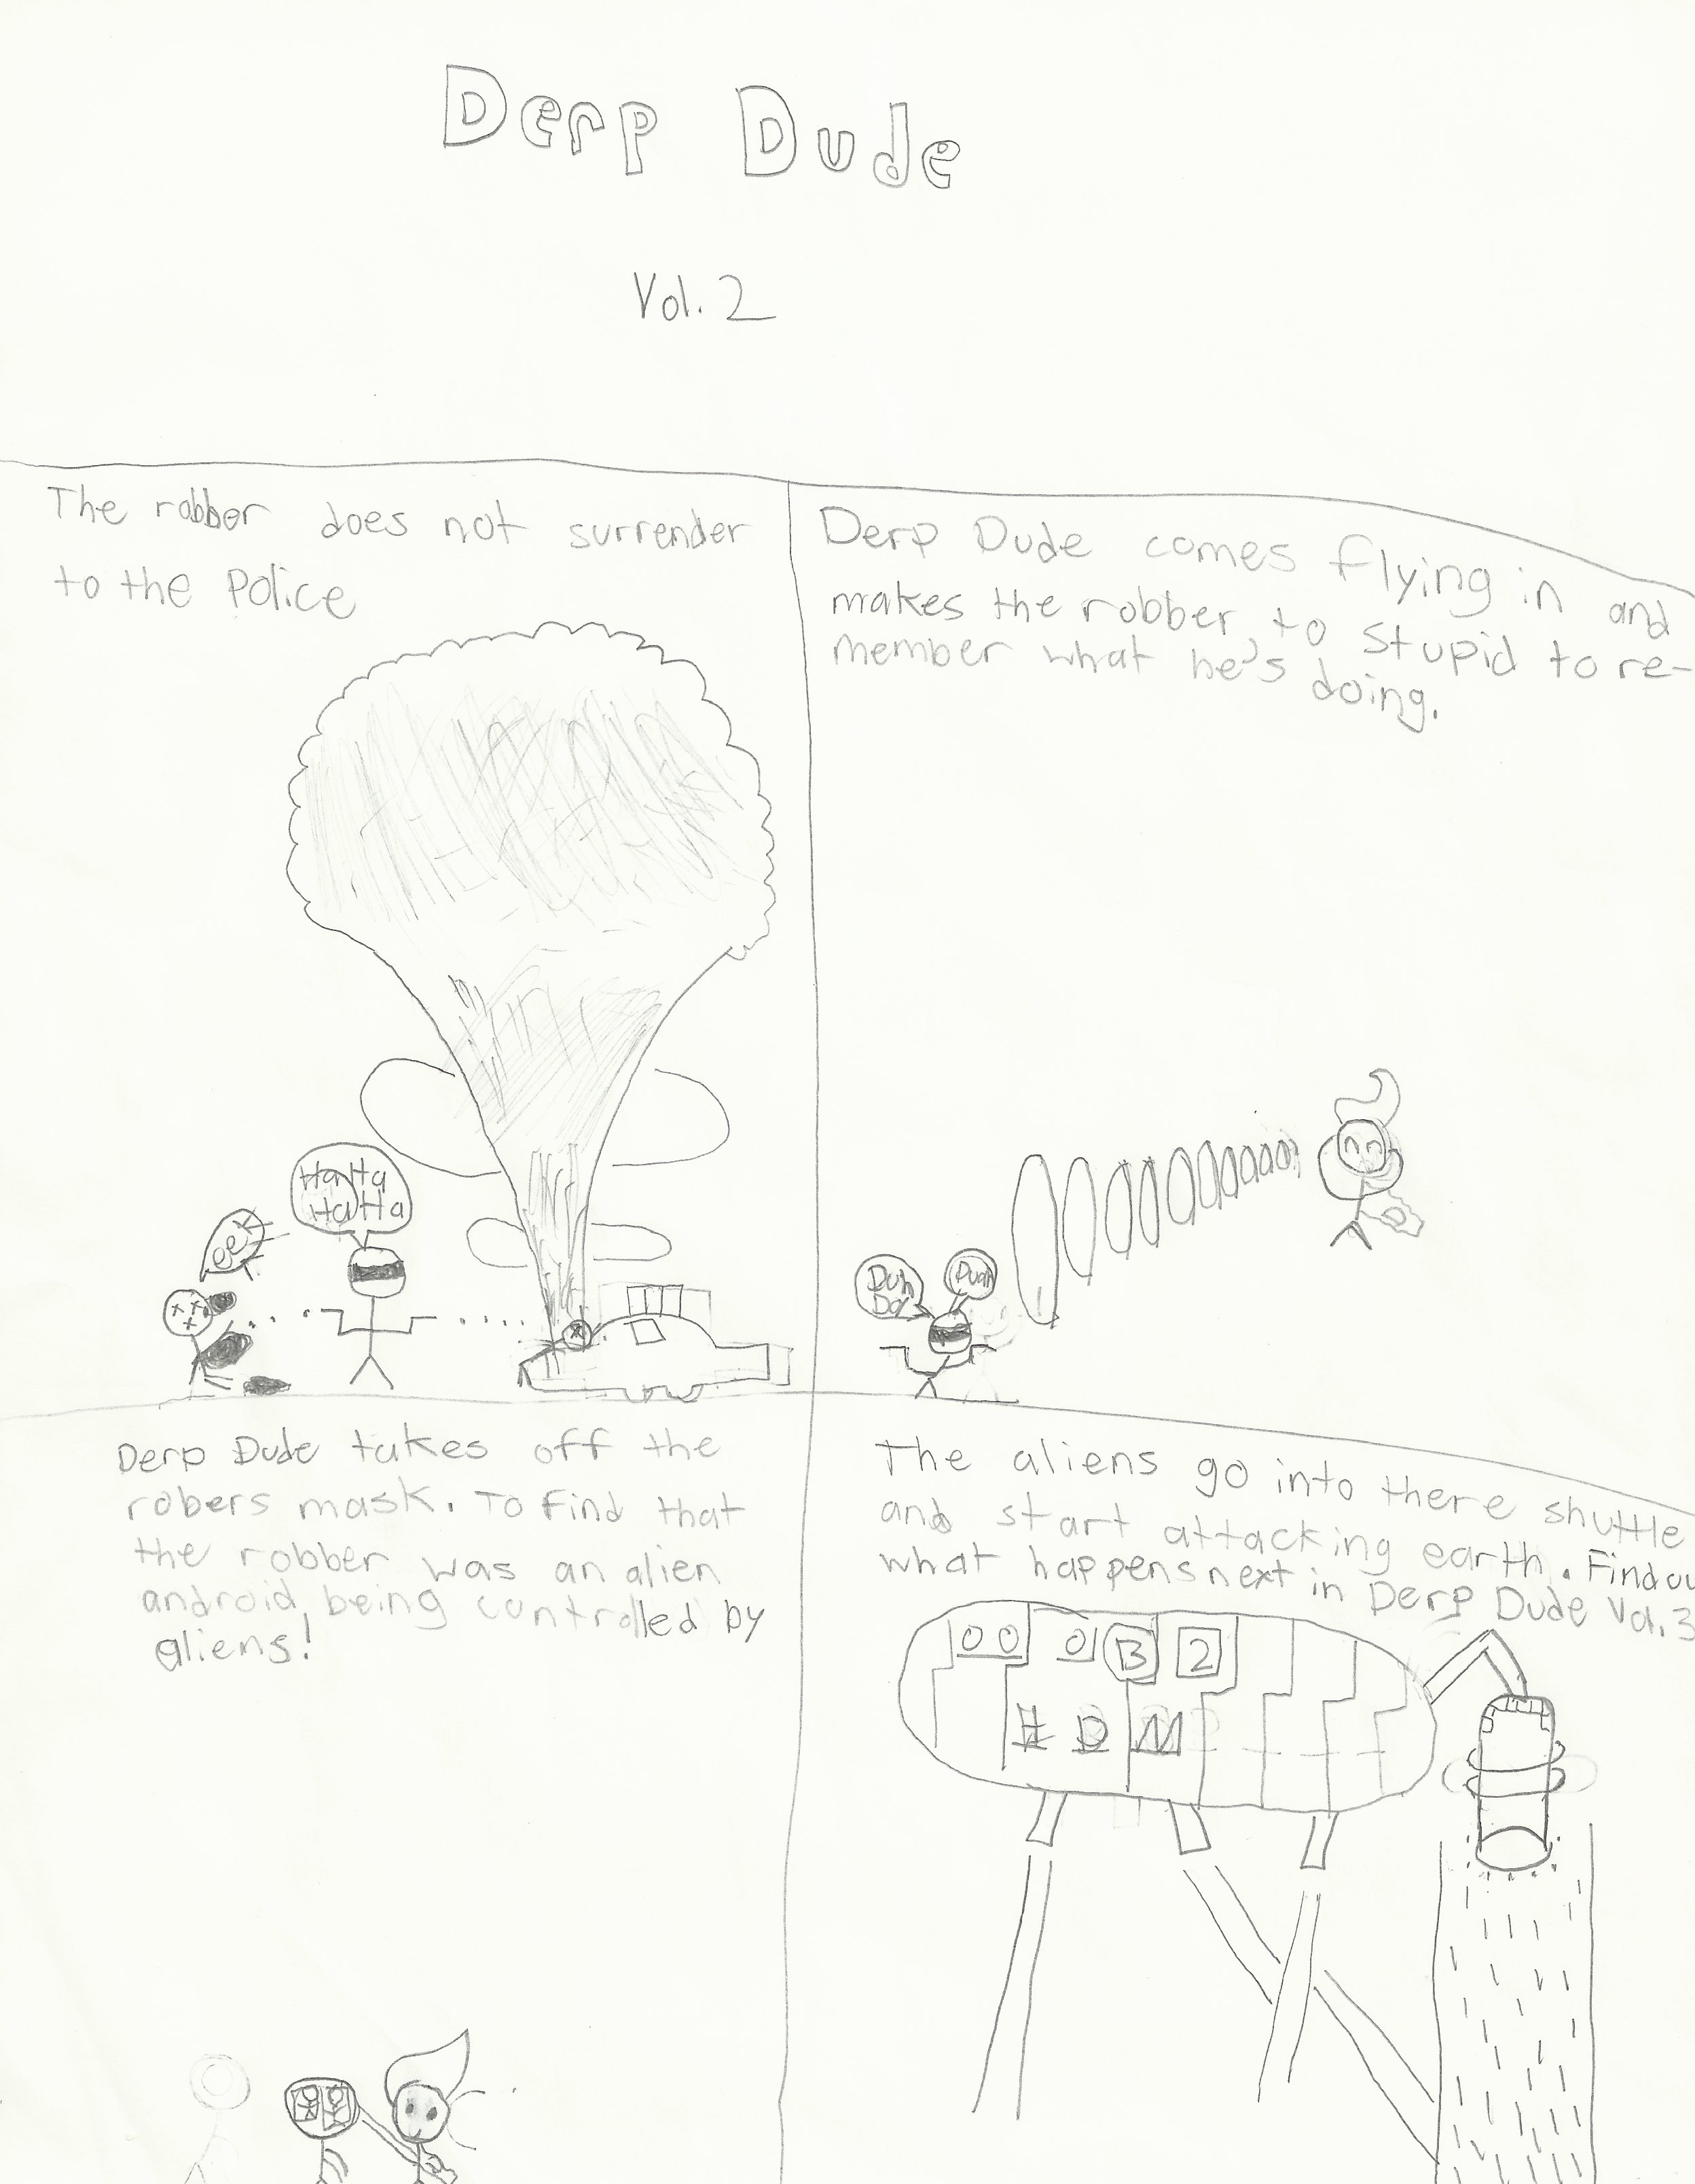 Derp Dude
Vol. 2
The robber does not surrender
to the Police
HaHa
HaHa
Derp Dude comes flying in and
makes the robber, to stupid to re-
member what he's doing.
Duh
Duh
Derp Dude takes off the
robers mask. To find that
the robber was an alien
android, being controlled by
aliens!
The aliens go into there shuttle
and start attacking earth. Find ou
what happens next in Derp Dude Vol. 3
00 0 B 2
D M